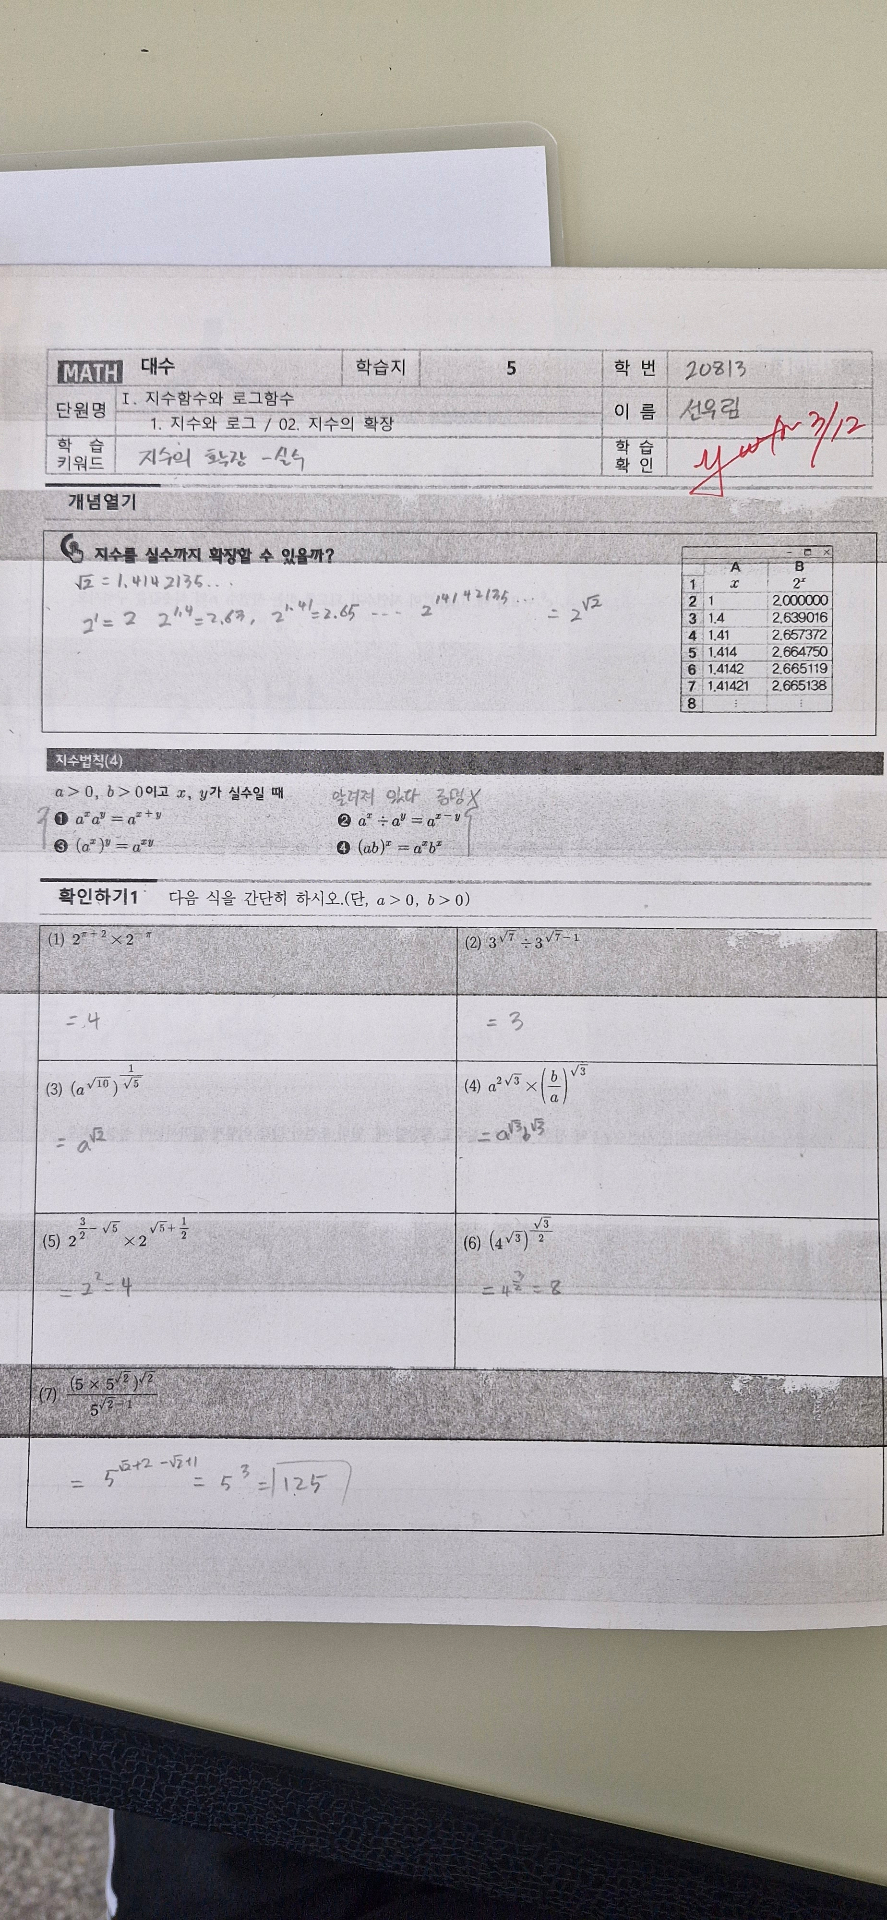 MATH 대수 학습지 5 학 번 20813
단원명 I. 지수함수와 로그함수 이 름 선우림
1. 지수와 로그 / 02. 지수의 확장
학 습 키워드 지수의 확장 - 실수 학 습 확 인 3/12
개념열기
지수를 실수까지 확장할 수 있을까?
√2 = 1.4142135...
2^1 = 2 2^1.4 = 2.63, 2^1.41 = 2.65 --- 2^14142135... = 2^√2
A B
1 x 2^x
2 1 2.000000
3 1.4 2.639016
4 1.41 2.657372
5 1.414 2.664750
6 1.4142 2.665119
7 1.41421 2.665138
8 ⋮ ⋮
지수법칙(4)
a > 0, b > 0이고 x, y가 실수일 때 알려져 있다 증명X
❶ a^x a^y = a^(x+y) ❷ a^x ÷ a^y = a^(x-y)
❸ (a^x)^y = a^(xy) ❹ (ab)^x = a^x b^x
확인하기1 다음 식을 간단히 하시오.(단, a > 0, b > 0)
(1) 2^(π+2) × 2^(-π) (2) 3^√7 ÷ 3^(√7-1)
= 4 = 3
(3) (a^√10)^(1/√5) (4) a^(2√3) × (b/a)^√3
= a^√2 = a^√3 b^√3
(5) 2^(3/2-√5) × 2^(√5+1/2) (6) (4^√3)^(√3/2)
= 2^2 = 4 = 4^(3/2) = 8
(7) (5 × 5^√2)^√2 / 5^(√2-1)
= 5^(√2+2-√2+1) = 5^3 = 125